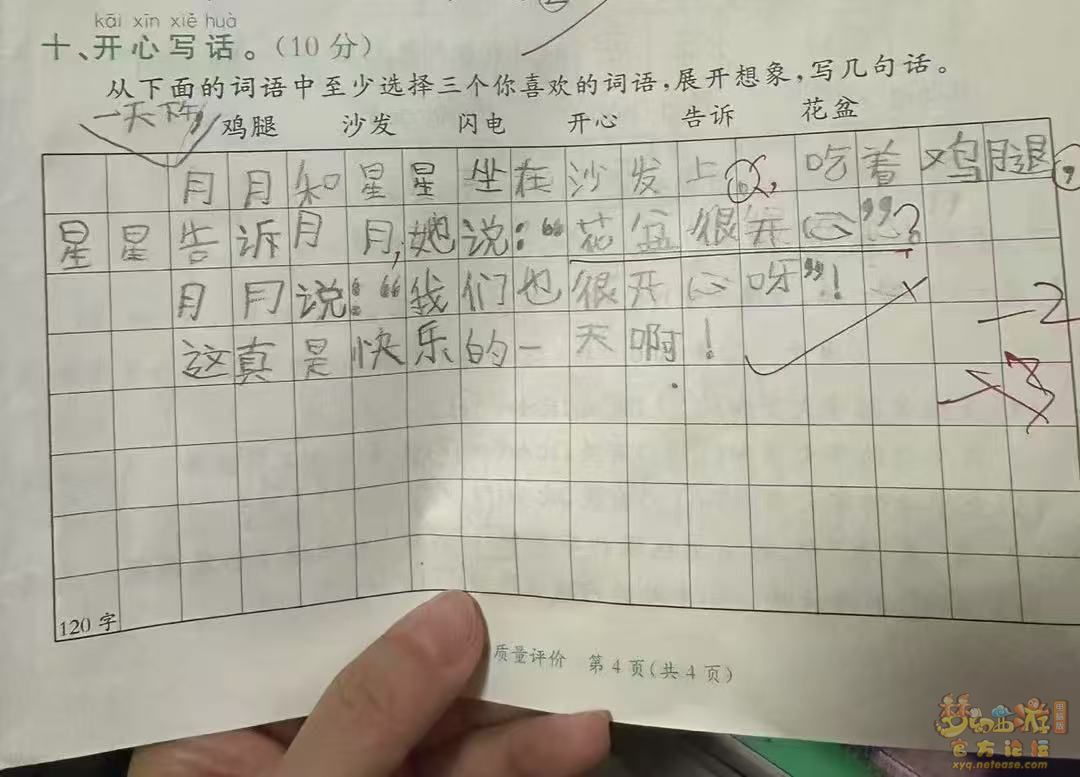 kāi xīn xiě huà
十、开心写话。(10分)
从下面的词语中至少选择三个你喜欢的词语,展开想象,写几句话。
一天下午,
鸡腿 沙发 闪电 开心 告诉 花盆
月月和星星坐在沙发上,吃着鸡腿,
星星告诉月月,她说:“花盆很开心”?
月月说:“我们也很开心呀”!
-2
这真是快乐的一天啊!
-3
120字
质量评价 第4页(共4页)
梦幻西游
电脑版
官方论坛
xyq.netease.com